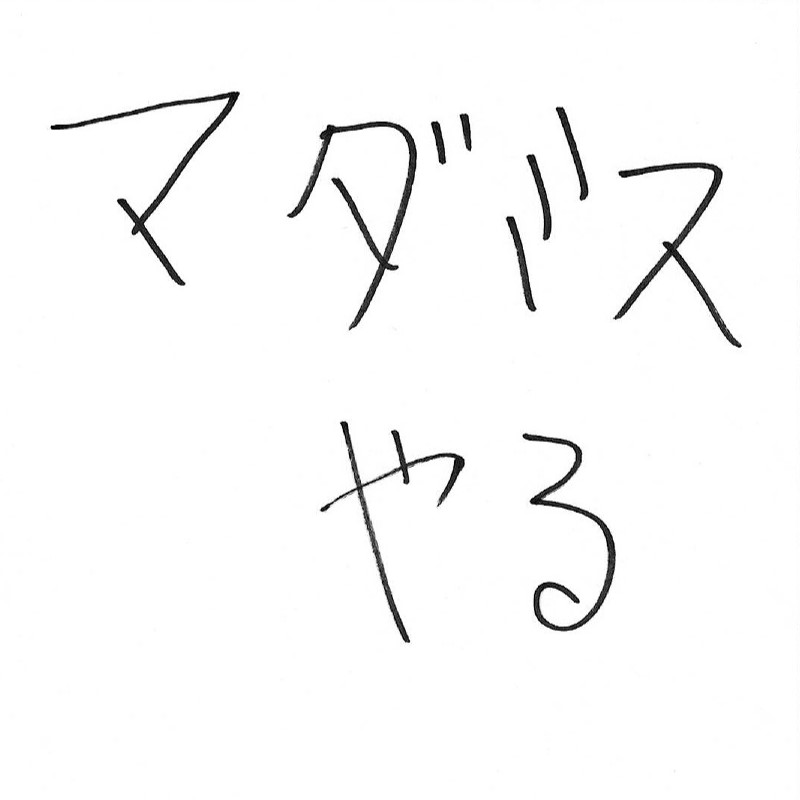 マダミス
やる